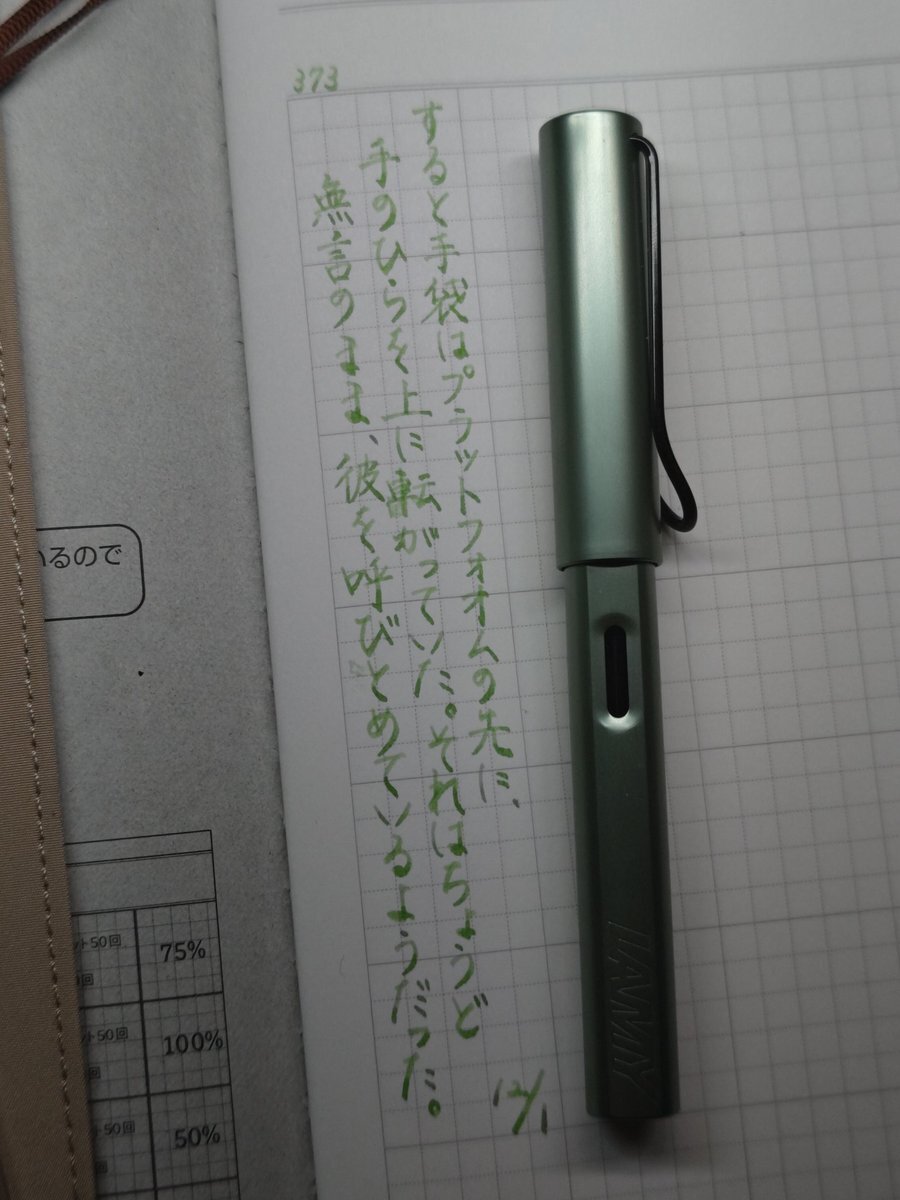 373
すると手袋はプラットフォオムの先に、
手のひらを上に転がっていた。それはちょうど
無言のまま、彼を呼びとめているようだった。
12/1
LAMY
いるので
ット50回
75%
ット50回
100%
ット50回
50%